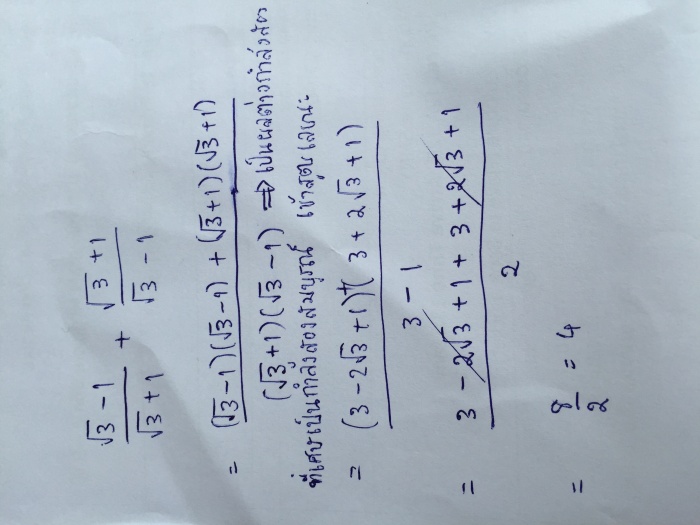 (√3 - 1)/(√3 + 1) + (√3 + 1)/(√3 - 1)
= ((√3 - 1)(√3 - 1) + (√3 + 1)(√3 + 1))/((√3 + 1)(√3 - 1)) ⇒ เป็นผลต่างกำลังสอง
ที่เศษเป็นกำลังสองสมบูรณ์ เข้าสูตรเลยนะ
= ((3 - 2√3 + 1) + (3 + 2√3 + 1))/(3 - 1)
= (3 - 2√3 + 1 + 3 + 2√3 + 1)/2
= 8/2 = 4